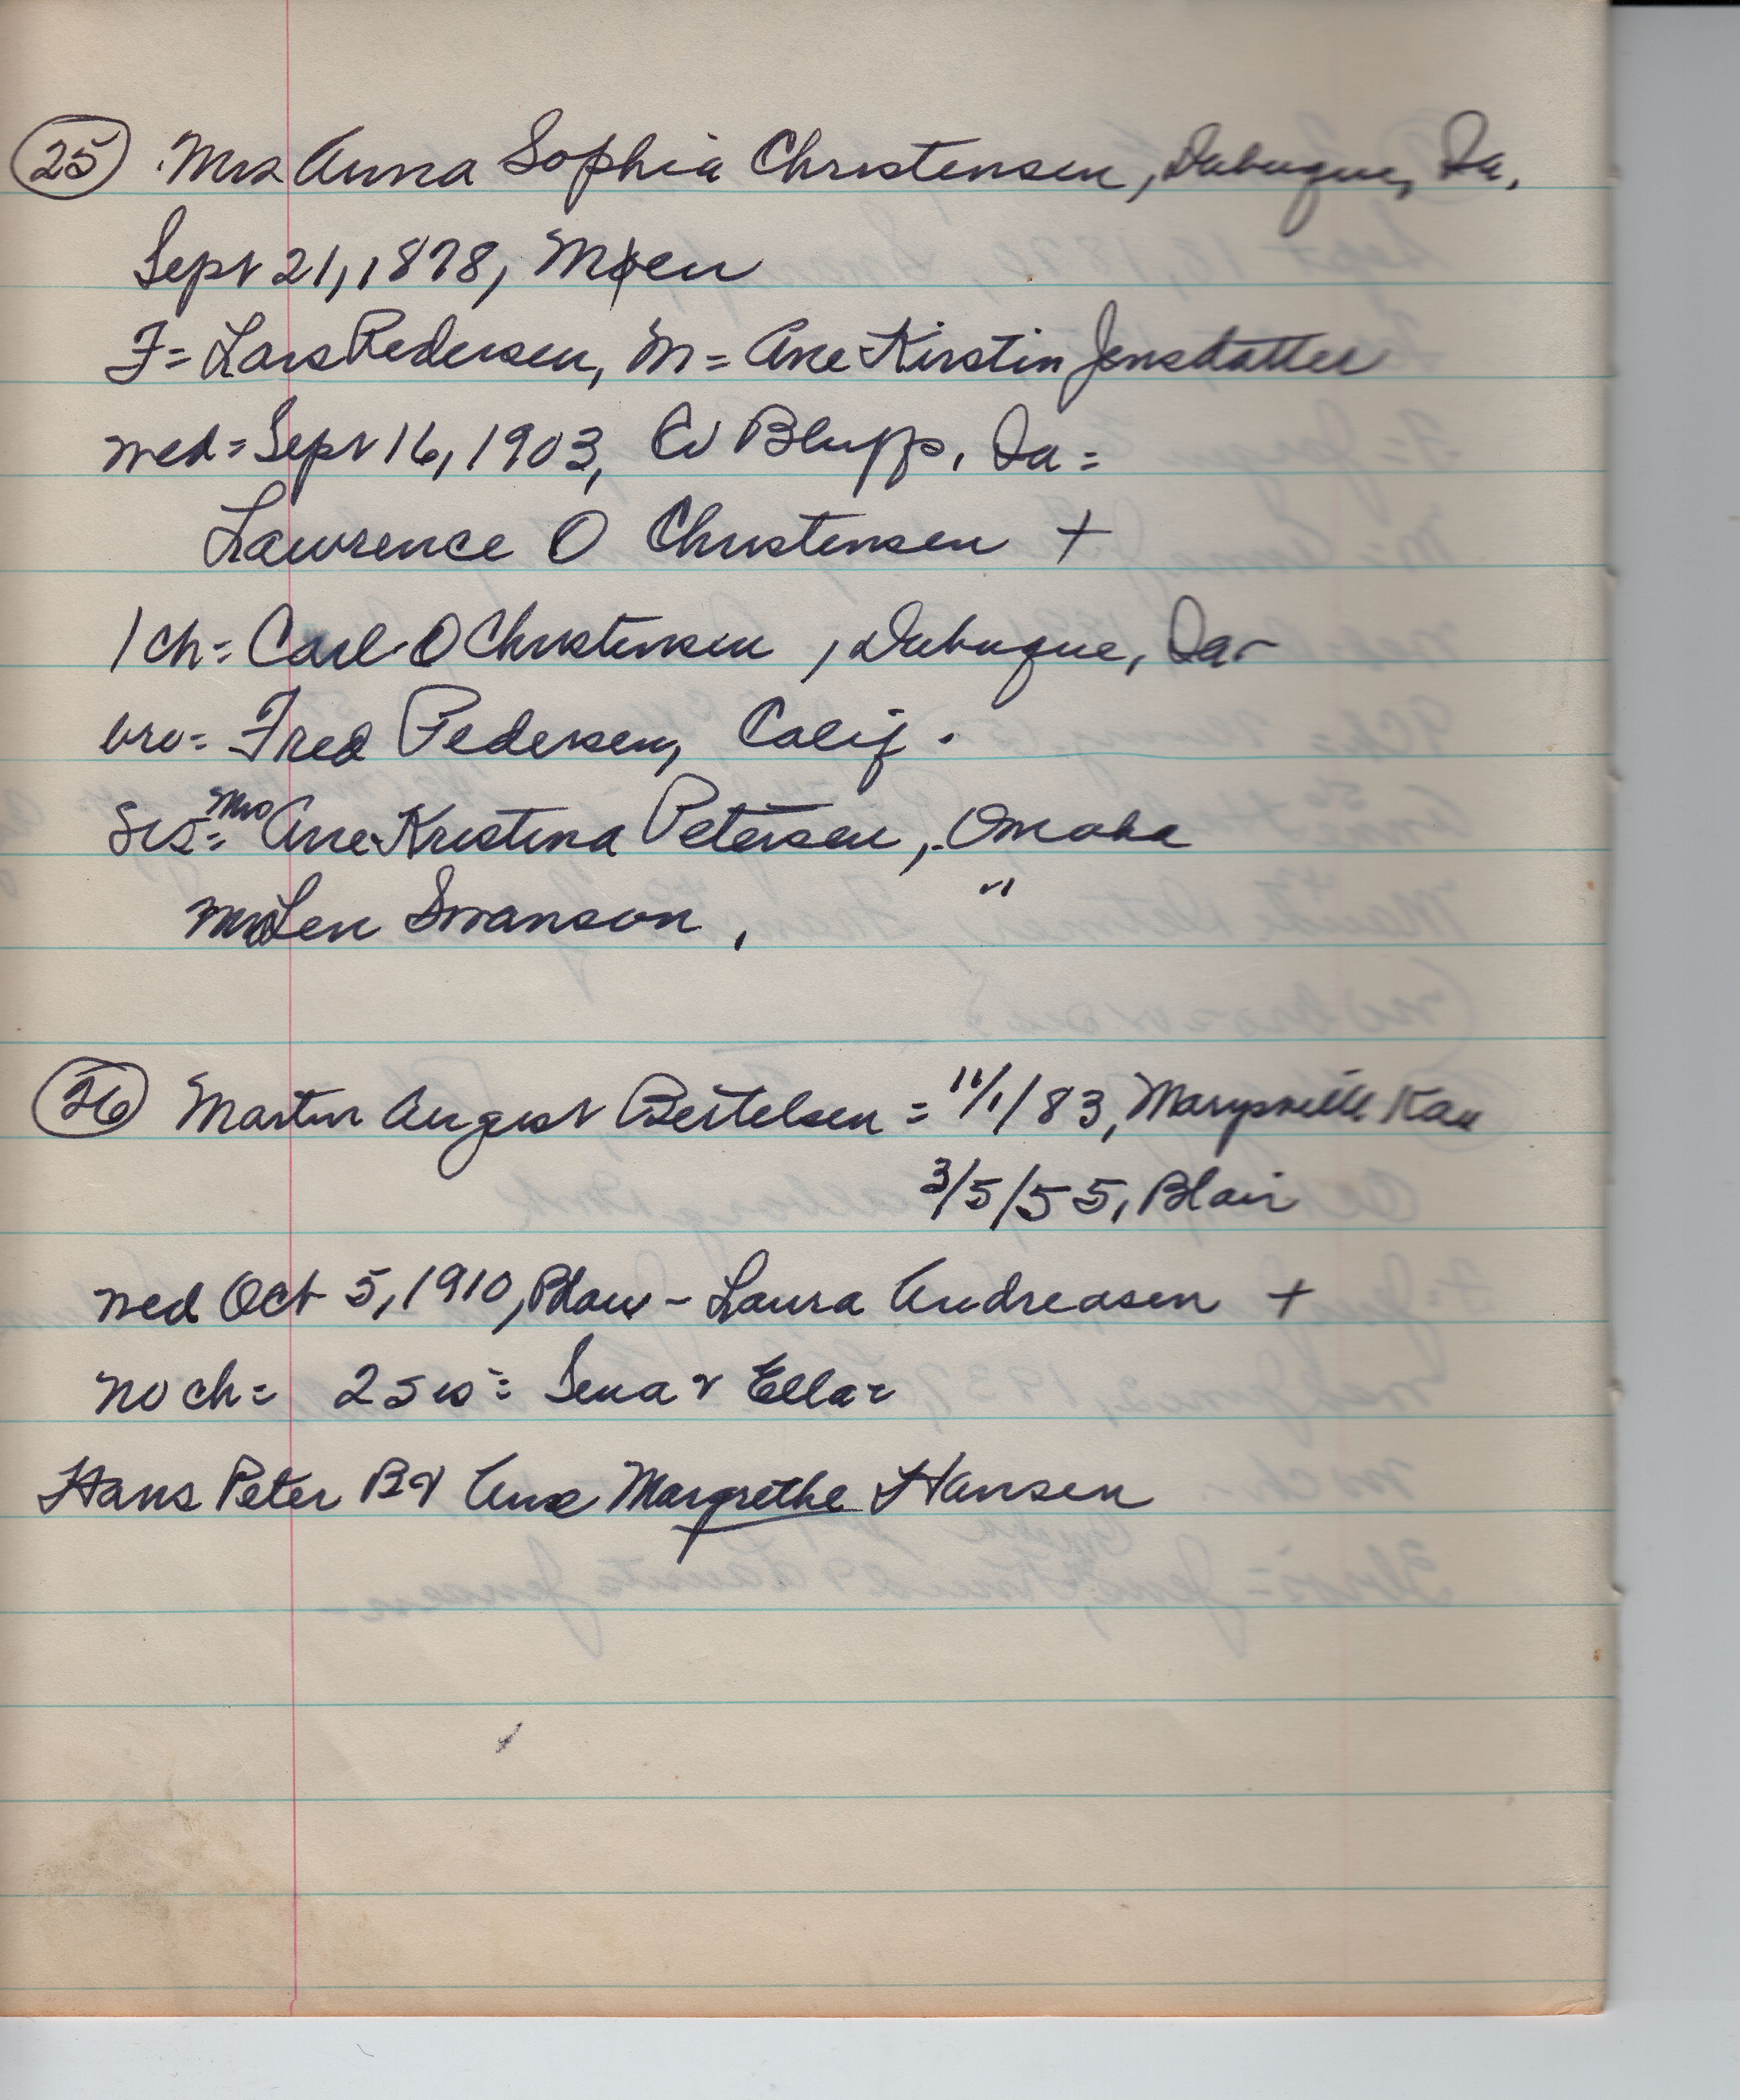 25 Mrs Anna Sophia Christensen, Dubuque, Ia.
Sept 21, 1878, Møen
F = Lars Pedersen, M = Ane Kirstin Jensdatter
wed = Sept 16, 1903, Co Bluffs, Ia =
Lawrence O Christensen +
1 ch = Carl O Christensen, Dubuque, Ia -
bro = Fred Pedersen, Calif.
Sis = Mrs Ane Kristina Petersen, Omaha
Mrs Len Swanson, "
26 Martin August Bertelsen = 11/1/83, Marysville Kan
3/5/55, Blair
wed Oct 5, 1910, Blair - Laura Andreasen +
no ch = 2 sis = Sena & Ella =
Hans Peter B & Ane Margrethe Hansen